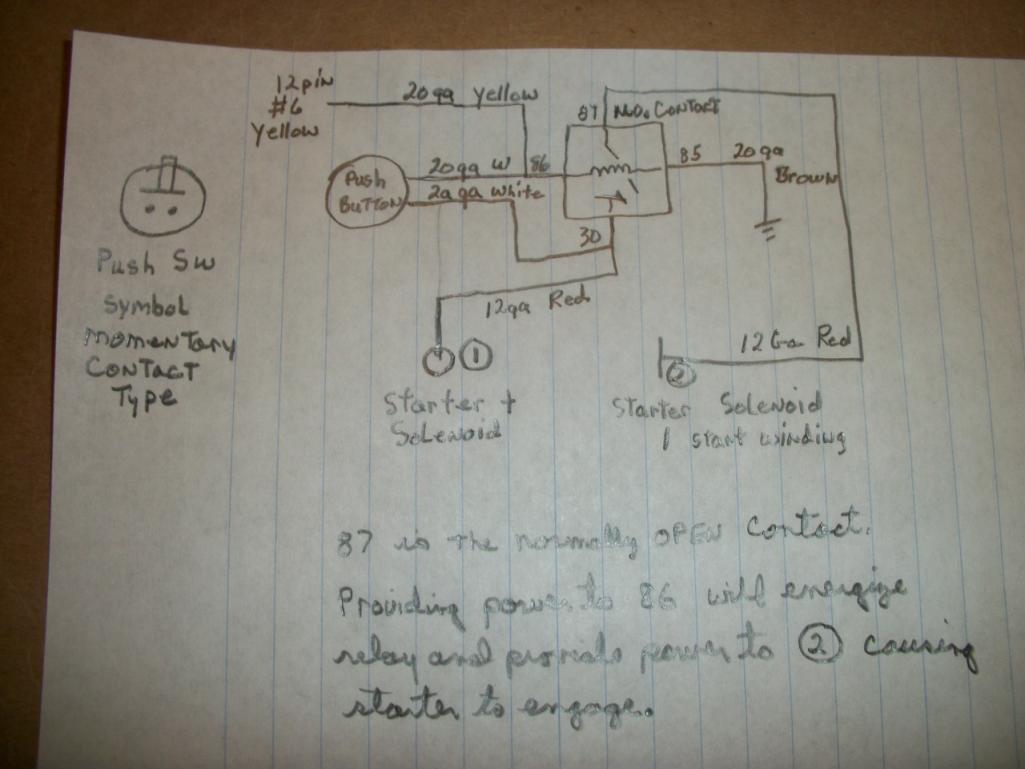 12pin
#6
Yellow
20ga Yellow
87 N.O. CONTACT
20ga W 86
85 20ga
Brown
Push
BUTTON
20ga White
30
Push Sw
Symbol
Momentary
CONTACT
Type
12ga Red
1
12Ga Red
2
Starter +
Solenoid
Starter Solenoid
1 start winding
87 is the normally OPEN Contact.
Providing power to 86 will energize
relay and provide power to 2 causing
starter to engage.